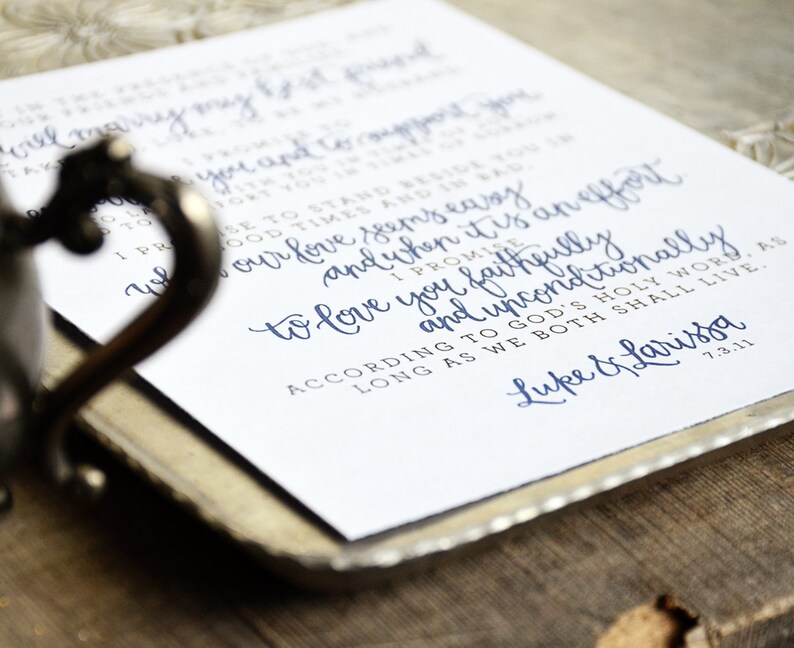 IN THE PRESENCE OF GOD AND
OUR FRIENDS AND FAMILY
will marry my best friend
TAKE
I PROMISE TO
you and to support you
TO LAUGH WITH YOU IN TIMES OF
I PROMISE TO STAND BESIDE YOU IN
GOOD TIMES AND IN BAD.
when our love seems easy
and when it is an effort.
I PROMISE
to love you faithfully
and unconditionally
ACCORDING TO GOD'S HOLY WORD, AS
LONG AS WE BOTH SHALL LIVE.
Luke & Larissa
7.3.11